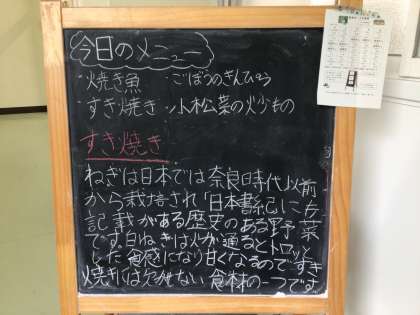 今日のメニュー
・焼き魚 ・ごぼうのきんぴら
・すき焼き ・小松菜の炒もの
すき焼き
ねぎは日本では奈良時代以前
から栽培され「日本書紀」にも
記載がある歴史のある野菜
です。白ねぎは火が通るとトロッと
した食感になり甘くなるのですき
焼きには欠かせない食材の一つです